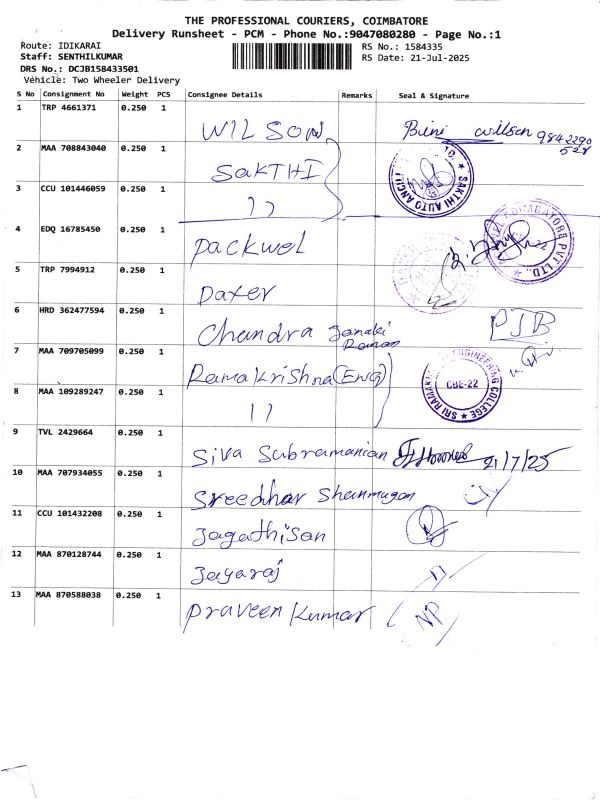 THE PROFESSIONAL COURIERS, COIMBATORE
Delivery Runsheet - PCM - Phone No.:9047080280 - Page No.:1
Route: IDIKARAI
Staff: SENTHILKUMAR
DRS No.: DCJB158433501
Vehicle: Two Wheeler Delivery
RS No.: 1584335
RS Date: 21-Jul-2025
S No Consignment No Weight PCS Consignee Details Remarks Seal & Signature
1 TRP 4661371 0.250 1 WILSON Bini wilson 9842290
528
2 MAA 708843040 0.250 1 SAKTHI SAKTHI AUTO
3 CCU 101446059 0.250 1 11
4 EDQ 16785450 0.250 1 Packwel COIMBATORE PVT LTD.,
5 TRP 7994912 0.250 1 Daxer
6 HRD 362477594 0.250 1 Chandra Janaki
Raman PJB
7 MAA 709705099 0.250 1 Rama Krishna (ENG) SRI RAMAKRISHNA ENGINEERING COLLEGE CBE-22
8 MAA 109289247 0.250 1 11
9 TVL 2429664 0.250 1 Siva Subramanian 21/7/25
10 MAA 707934055 0.250 1 Sreedhar Shanmugan
11 CCU 101432208 0.250 1 Jagathisan
12 MAA 870128744 0.250 1 Jayaraj
13 MAA 870588038 0.250 1 Praveen Kumar NP